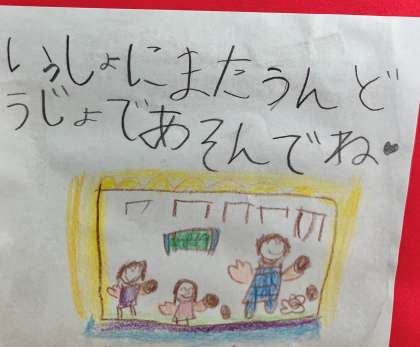 いっしょにまたうんど
うじょであそんでね